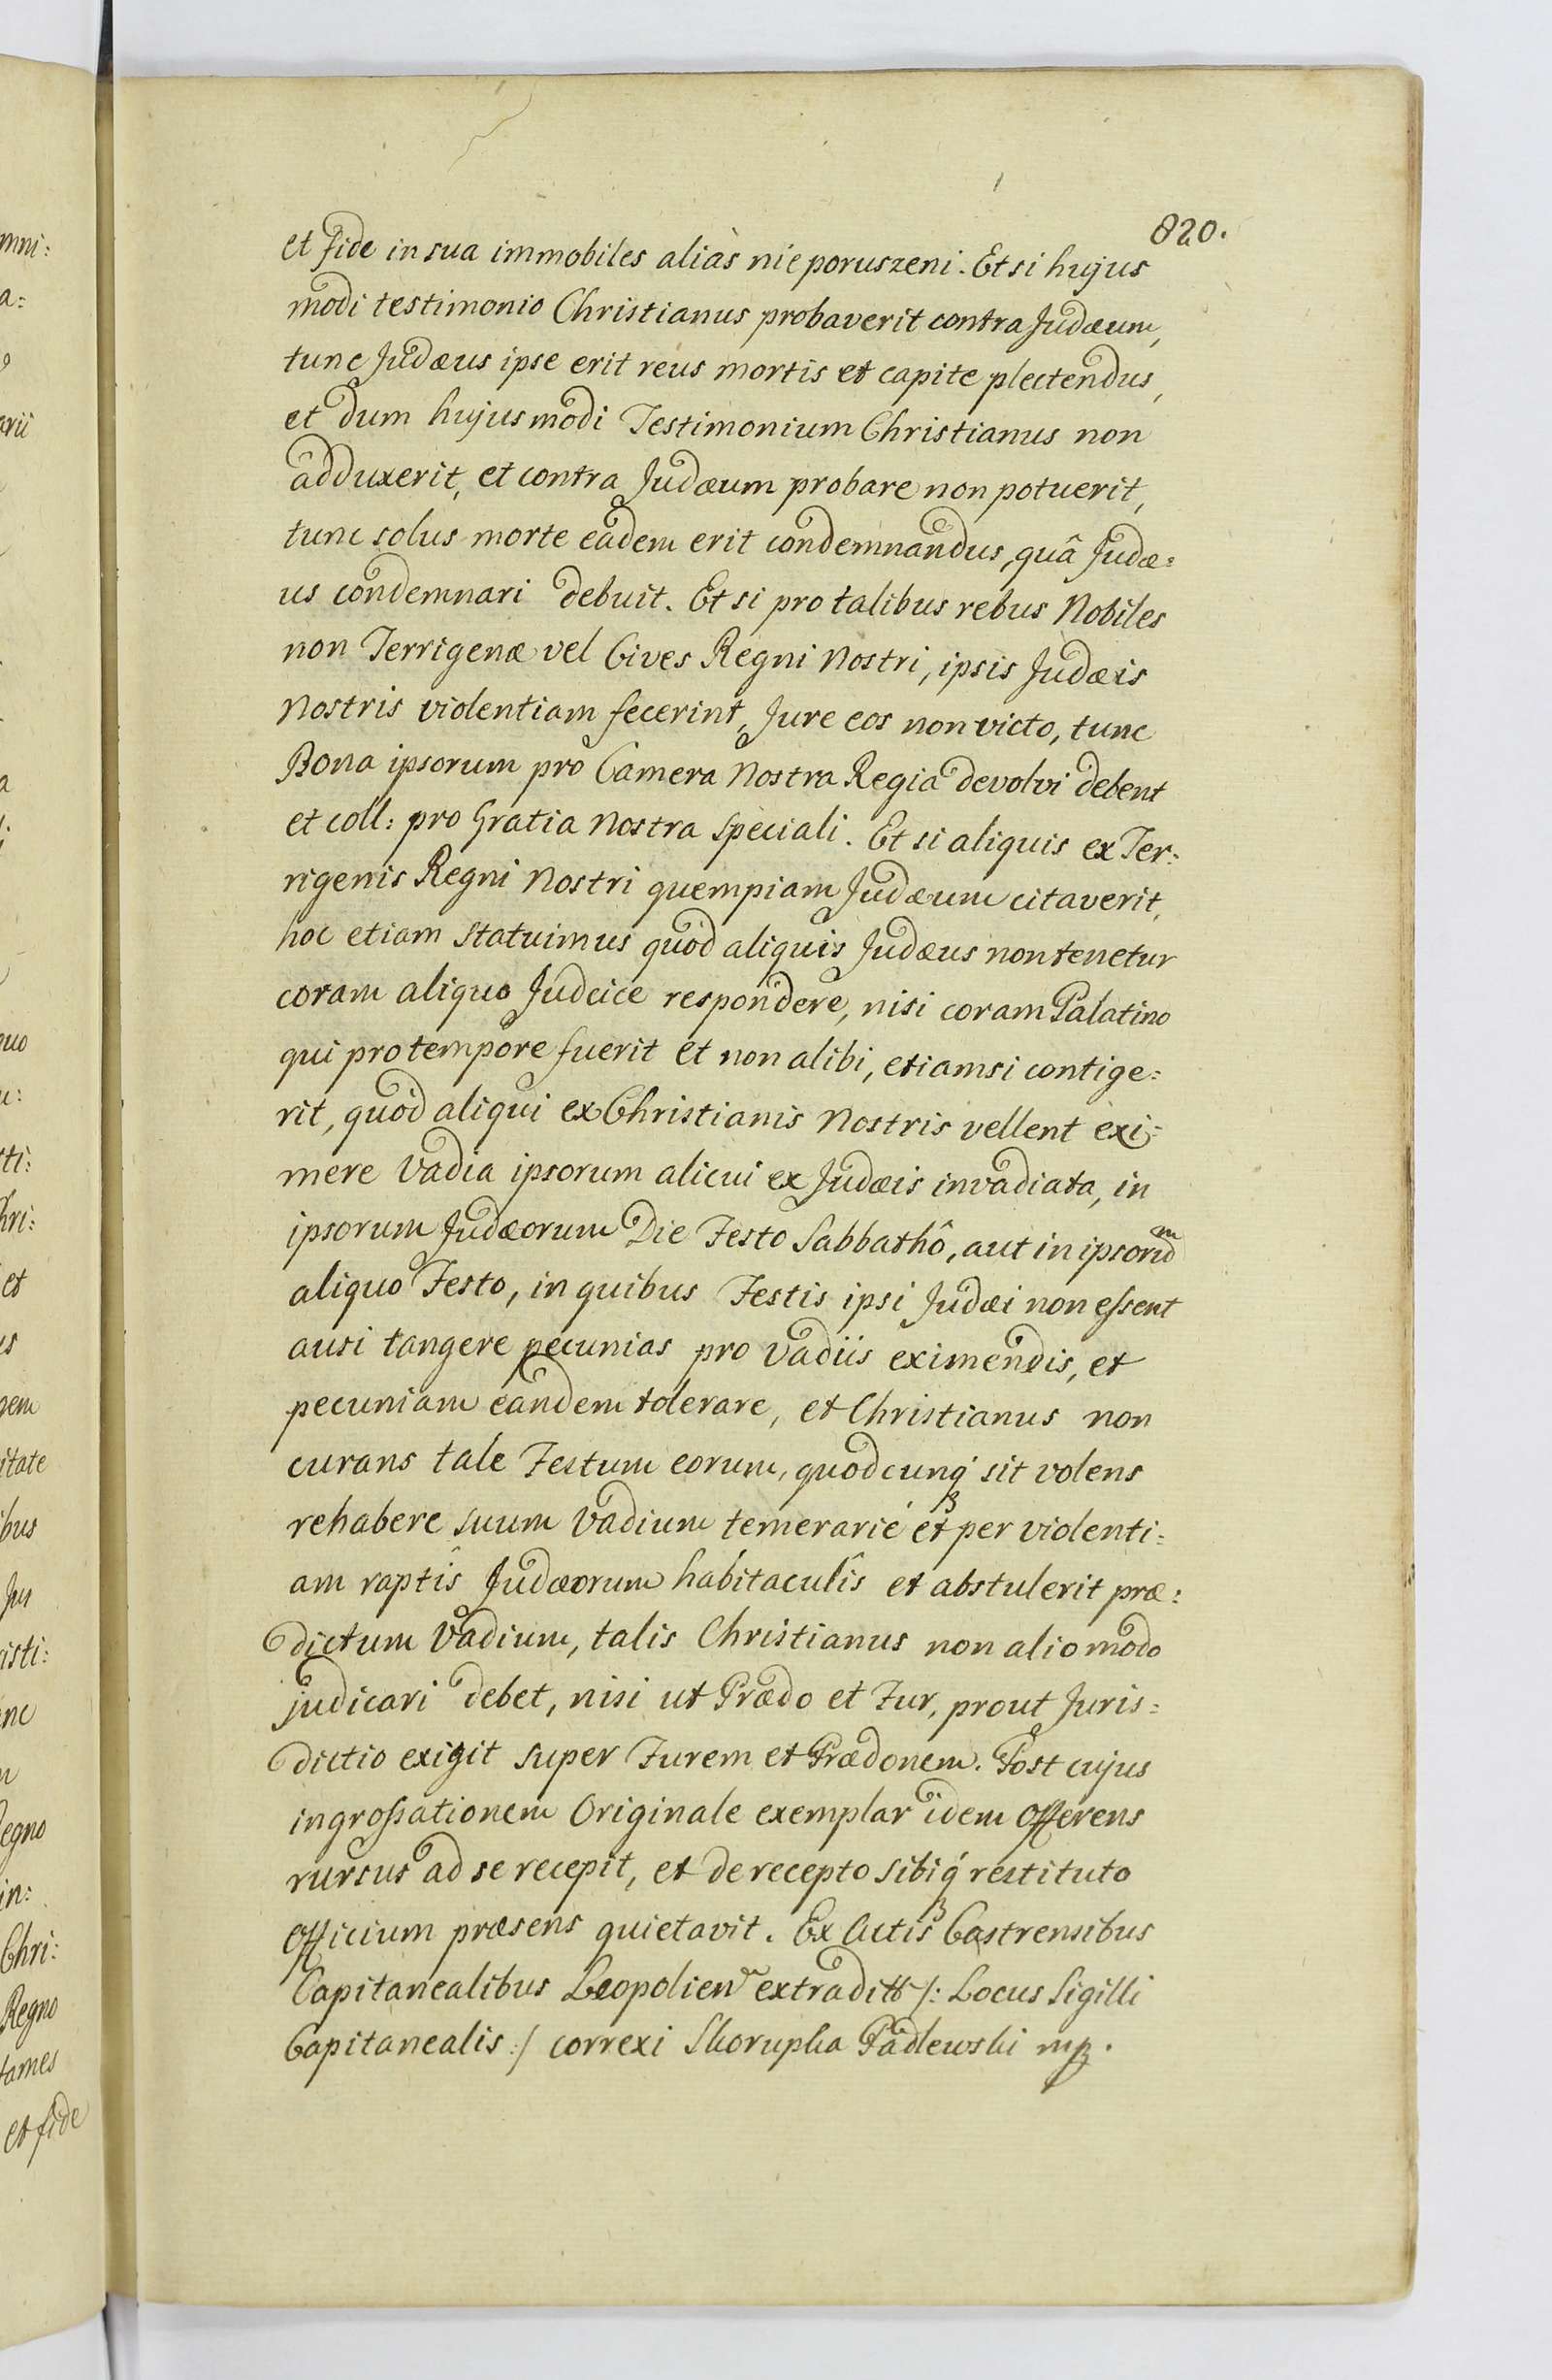 820.
et fide in sua immobiles aliàs nie poruszeni. Et si hujus
modi testimonio Christianus probaverit contra Judæum,
tunc Judæus ipse erit reus mortis et capite plectendus,
et dum hujusmodi Testimonium Christianus non
adduxerit, et contra Judæum probare non potuerit,
tunc solus morte eadem erit condemnandus, quâ Judæ=
us condemnari debuit. Et si pro talibus rebus Nobiles
non Terrigenæ vel Cives Regni Nostri, ipsis Judæis
Nostris violentiam fecerint, Jure eos non victo, tunc
Bona ipsorum pro Camera Nostra Regia devolvi debent
et coll: pro Gratia Nostra speciali. Et si aliquis ex Ter:
rigenis Regni Nostri quempiam Judæum citaverit,
hoc etiam statuimus quòd aliquis Judæus non tenetur
coram aliquo Judcice respondere, nisi coram Palatino
qui pro tempore fuerit et non alibi, etiamsi contige=
rit, quòd aliqui ex Christianis Nostris vellent exi=
mere Vadia ipsorum alicui ex Judæis invadiata, in
ipsorum Judæorum Die Festo Sabbathô, aut in ipsorum
aliquo Festo, in quibus Festis ipsi Judæi non essent
ausi tangere pecunias pro Vadiis eximendis, et
pecuniam eandem tolerare, et Christianus non
curans tale Festum eorum, quodcunq́ sit volens
rehabere suum Vadium temerariè et per violenti=
am raptîs Judæorum habitaculîs et abstulerit præ:
dictum Vadium, talis Christianus non alio modo
judicari debet, nisi ut Prædo et Fur, prout Juris=
dictio exigit super Furem et Prædonem. Post cujus
ingrossationem Originale exemplar idem Offerens
rursus ad se recepit, et de recepto sibiq́ restituto
Officium præsens quietavit. Ex Actis Castrensibus
Capitanealibus Leopolien extraditt /: Locus Sigilli
Capitanealis :/ correxi Skorupka Padlewski mp.
mni:
a:
arii
a
quo
u:
ti:
hri:
et
us
gem
itate
ibus
Jur
isti:
nc
Regno
in:
Chri:
Regno
tames
et fide